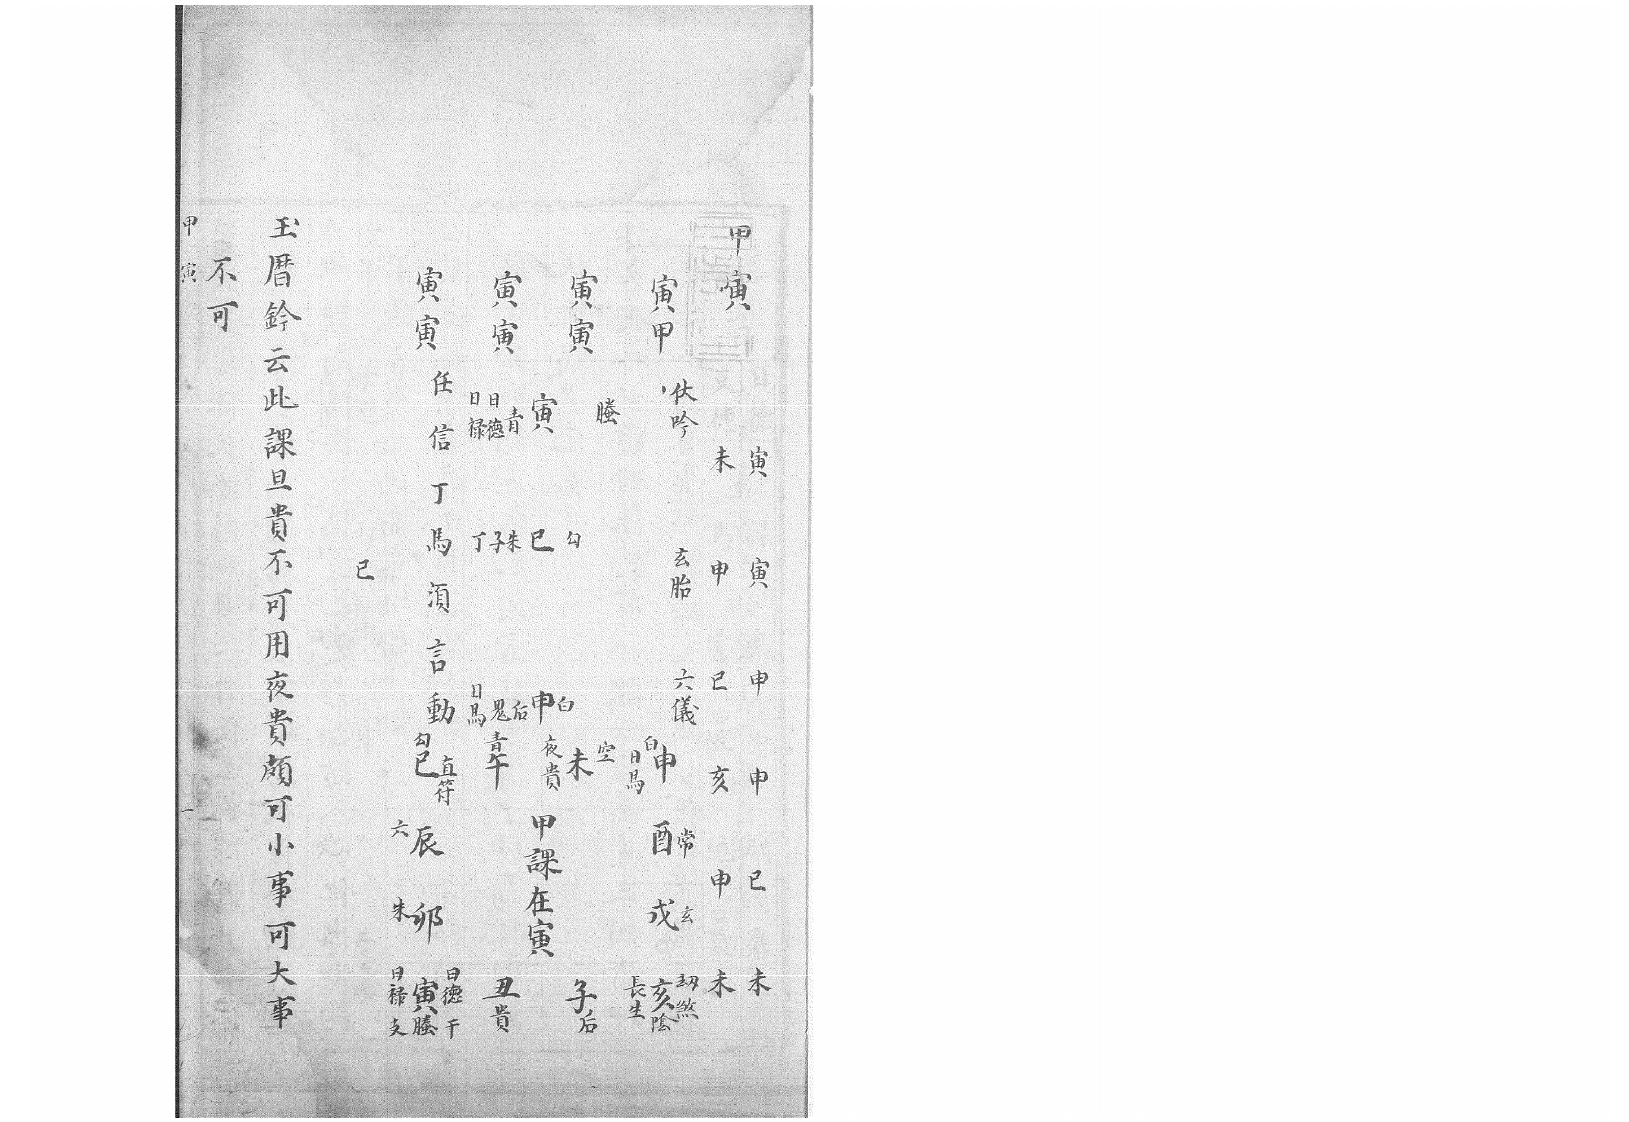 甲寅
寅寅申申巳未
未申巳亥申未
寅甲
伏吟
玄胎
六儀
寅寅
寅寅
寅寅
螣
寅
青
日德
日禄
勾
巳
朱
子
丁
白
申
后
鬼
日馬
任信丁馬須言動
白
申
日馬
常
酉
玄
戌
劫煞
亥
陰
長生
空
未
夜貴
子
后
甲課在寅
青
午
丑
貴
勾
巳
直符
六
辰
朱
卯
日德
干
寅
螣
日禄
支
巳
玉曆鈐云此課旦貴不可用夜貴頗可小事可大事
不可
甲寅
一